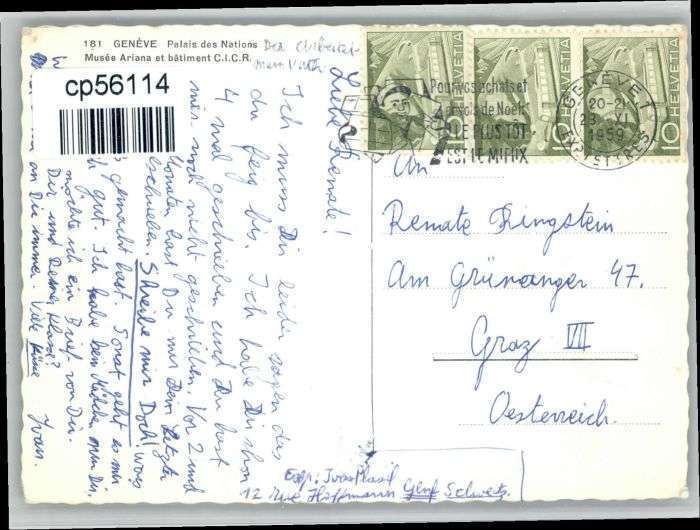 181 GENÈVE Palais des Nations
Musée Ariana et bâtiment C.I.C.R.
cp56114
HELVETIA
10
HELVETIA
10
HELVETIA
10
Pour vos achats et
envois de Noël
LE PLUS TÔT
EST LE MIEUX
GENÈVE 1
20-21
23 XI
1959
Liebe Renate!
Ich muss Dir leider sagen das
du ferg bis. Ich habe Dir schon
4 mal geschrieben und Du hast
mir noch nicht geschrieben. Vor 2 und
Monaten hast Du mir Dein letzter
geschrieben. Schreibe mir Doch! was
gemacht hast. Sonst geht es mir
gut. Ich habe kein Mädchen
möchte ich ein Brief von Dir.
Dir und Deiner Klasse?
an Die immer. Viele Küsse
Ivan.
An
Renate Ringstein
Am Grünanger 47.
Graz VII
Oesterreich.
Exp: Ivan
12 rue Hoffmann Genf Schweiz.